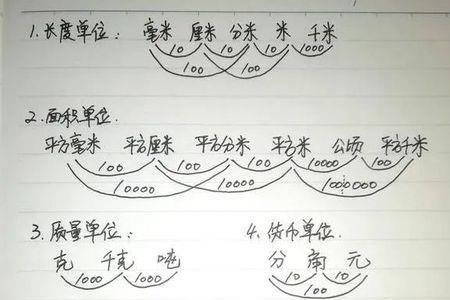 1.长度单位: 毫米 厘米 分米 米 千米
10 10 10 1000
100 100
2.面积单位.
平方毫米 平方厘米 平方分米 平方米 公顷 平方千米
100 100 100 10000 100
10000 10000 1000000
3.质量单位: 4.货币单位.
克 千克 吨 分 角 元
1000 1000 10 10
100